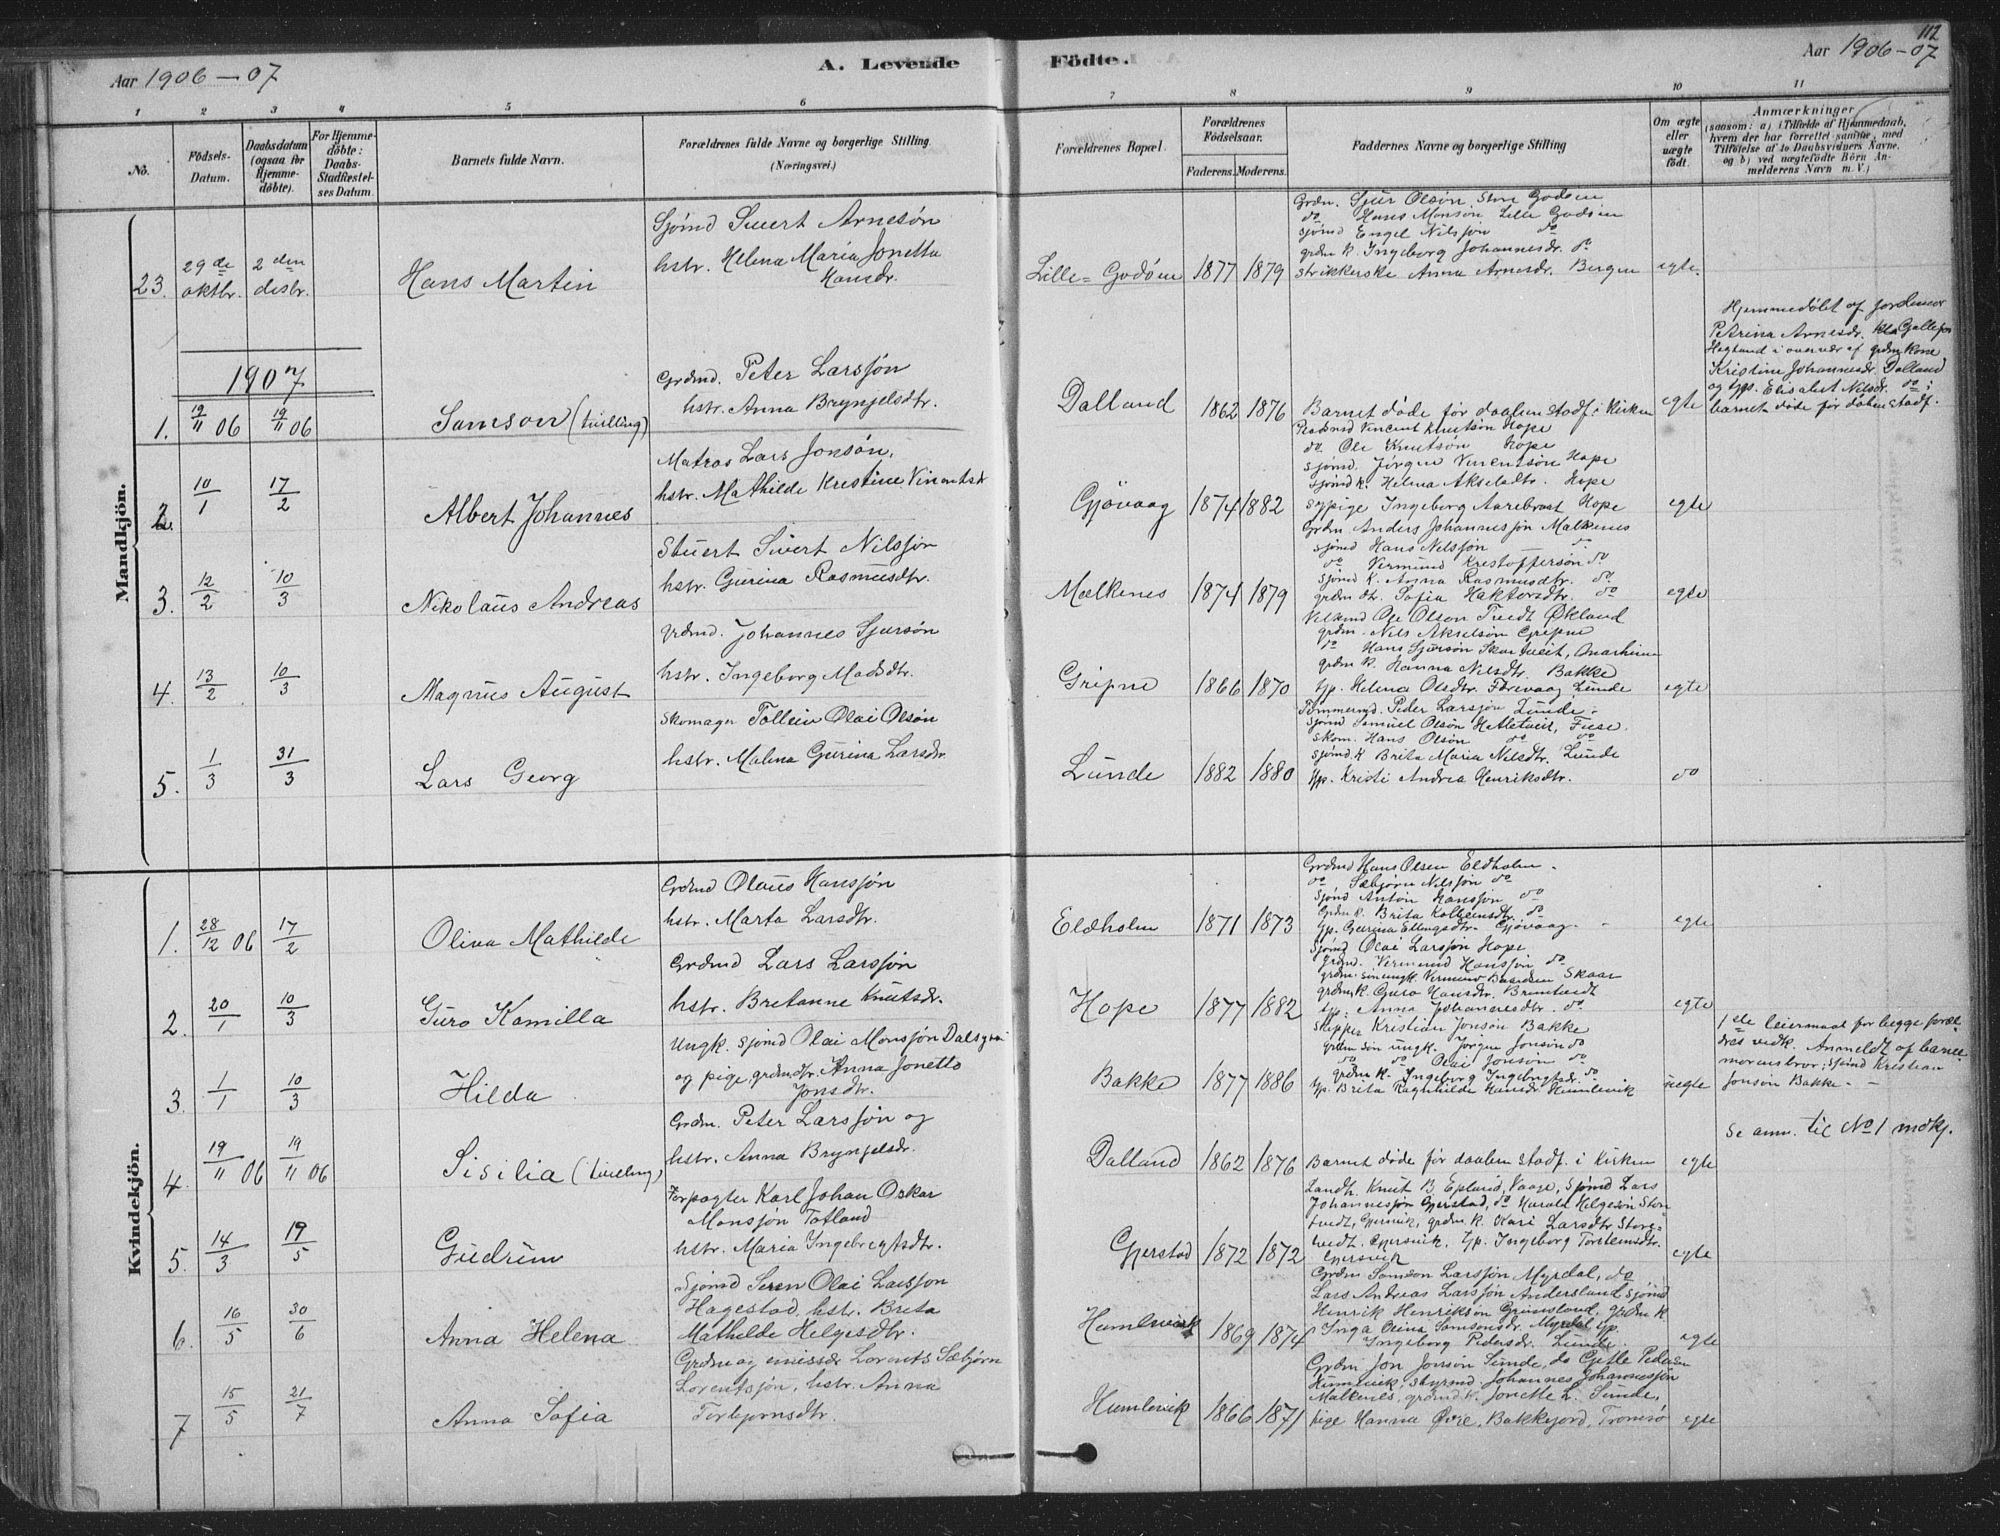 Aar 1906-07
A. Levende
Födte.
112
Aar 1906-07
1
2
3
4
5
6
7
8
9
10
11
No.
Födsels-Datum.
Daabsdatum (ogsaa for Hjemme-döbte).
For Hjemme-döbte: Daabs-Stadfæstel-ses Datum.
Barnets fulde Navn.
Forældrenes fulde Navne og borgerlige Stilling (Næringsvei).
Forældrenes Bopæl.
Forældrenes Födselsaar.
Faderens.
Moderens.
Faddernes Navne og borgerlige Stilling
Om ægte eller uægte födt.
Anmærkninger
(saasom: a) i Tilfælde af Hjemmedaab, hvem der har forrettet samme, med Tilföielse af to Daabsvidners Navne, og b) ved uægtefödte Börn An-melderens Navn m. V.)
Mandkjön.
23. 29de oktbr. 2den desbr. Hans Martin
Sjømd Sivert Arnesøn
hstr. Helena Maria Jonetta
Hansdr.
Lille-Godøen 1877 1879
Grdm. Sjur Olsøn Store Godøen
do Hans Monsøn Lille Godøen
sjømd Engel Nilsjøn do
grdm k. Ingeborg Johannesdr. do
strikkerske Anna Arnesdr. Bergen
egte.
1907
1. 19/11 06 19/11 06 Samson (tvilling)
Grdmd. Peter Larssøn
hstr. Anna Brynjelsdtr.
Dalland 1862 1876
Barnet døde før daaben stadf. i Kirken
egte
Hjemmedøbt af jordemor
Petrina Arnesdr.
Hegland i overvær af grdm kone
Kristine Johannesdr. Dalland
og tjp. Elisabet Nilsdr. do;
barnet døde før daben stadf.
2. 10/1 17/2 Albert Johannes
Matros Lars Jonsøn,
hstr. Mathilde Kristine Vinentsdr
Gjøvaag 1874 1882
Vincent Knutsøn Hope
do. Ole Knutsøn Hope
sjømd. Jørgen Vincentsøn Hope
sjømd k. Helena Akseldtr. Hope
sypige Ingeborg Aarebrot Hope
egte
3. 12/2 10/3 Nikolaus Andreas
Stuert Sivert Nilssøn
hstr. Gurina Rasmusdtr.
Malkenes 1874 1879
Grdm Anders Johannessøn Malkenes
sjømd Hans Nilssøn do
do Vermund Kristoffersøn do
sjømd k. Anna Rasmusdtr. do
grdm dtr. Sofia Haktorsdtr. do
egte
4. 13/2 10/3 Magnus August
grdmd. Johannes Sjursøn
hstr. Ingeborg Madsdtr.
Gripne 1866 1870
Ole Olson Tvedt Økland
grdm. Nils Akselsøn Gripne
do Hans Sjursøn Skartveit,
grdm k. Hanna Nilsdtr. Bakke
tjp. Helena Olsdtr. Færevaag Lunde
egte
5. 1/3 31/3 Lars Georg
Skomager Tollein Olai Olsøn
hstr. Malena Gurina Larsdr.
Lunde 1882 1880
Tømmermd. Peder Larssøn Lunde
sjømd Samuel Olsøn Hatletveit, Fuse.
skom. Hans Olsøn do do
sjømd k Brita Maria Nilsdtr. Lunde
tjp. Kristi Andrea Henriksdtr.
do
Kvindekjön.
1. 28/12 06 17/2 Oliva Mathilde
Grdmd Olaus Hanssøn
hstr. Marta Larsdtr.
Eldholm 1871 1873
Grdmd Hans Olsen Eldholm
do Sæbjørn Nilssøn do
sjømd Anton Hanssøn do
grdm k. Brita Kolbeinsdtr. do
tjp. Gurina Ellingsdtr. Gjøvaag
egte
2. 20/1 10/3 Guro Kamilla
Grdmd Lars Larssøn
hstr. Bretanne Knutsdr.
Hope 1877 1882
Sjømd Olai Larssøn Hope
grdm. Vermund Hanssøn do
grdm søn ungk. Vermund Skaar
grdm k. Guro Hansdtr. Brimtvedt
tjp. Anna Johannesdtr. do
egte
3. 1/1 10/3 Hilda
Ungk. sjømd Olai Monssøn
og pige, grdmdtr. Anna Jonetta
Jonsdtr.
Bakke 1877 1886
Skipper Kristian Jonsøn Bakke
grdm søn ungk. Jørgen Jonsøn do
do do Olai Jonsøn do
grdm k. Ingeborg Ingebrigtsdr. do
tjp. Brita Ragnhilde Hansdr Humlevik
uegte
1ste leiermaal for begge foræl
dres vedk. Anmeldt af barnets
morensbror; sjømd Kristian
Jonsøn Bakke
4. 19/11 06 19/11 06 Sisilia (tvilling)
Grdm. Peter Larssøn og
hstr. Anna Brynjelsdr.
Dalland 1862 1876
Barnet døde før daaben stadf. i Kirken
egte
Se anm. til No 1 mdkj.
5. 14/3 19/5 Gudrun
Forpagter Karl Johan Oskar
Monssøn Totland
hstr. Maria Ingebregtsdtr.
Gjerstad 1872 1872
Landh. Knut B. Epland, Vaage, sjømd Lars
Johannessøn Gjerstad, do Harald Helgesøn Stor
tvedt, Gjersvik, grdm. k. Kari Larsdtr Store-
tvedt, Gjersvik, tjp. Ingeborg Torsteinsdtr.
Gjersvik
egte
6. 16/5 30/6 Anna Helena
Sjømd Seren Olai Larsson
Hagestad, hstr. Brita
Mathilde Helgesdtr.
Humlevik 1869 1874
Grdm Samson Larssøn Myrdal, do
Lars Andreas Larssøn Andersland, sjømd
Henrik Henriksøn Grimsland, grdm k
Inga Olina Samsonsdr. Myrdal, tjp.
Ingeborg Pedersdr. Lunde
egte
7 15/5 21/7 Anna Sofia
Grdm og emissær Lorents Sæbjørn
Lorentssøn, hstr. Anna
Torbjørnsdtr.
Humlevik 1866 1871
Grdm Jon Jonsøn Sunde, do Gjetle Pedersen
Humlevik, styrmd. Johannes Johannessøn
Malkenes, grdmd k. Jonette L. Sunde,
pige Hanna Øvre, Bakkejord, Tromsø
egte